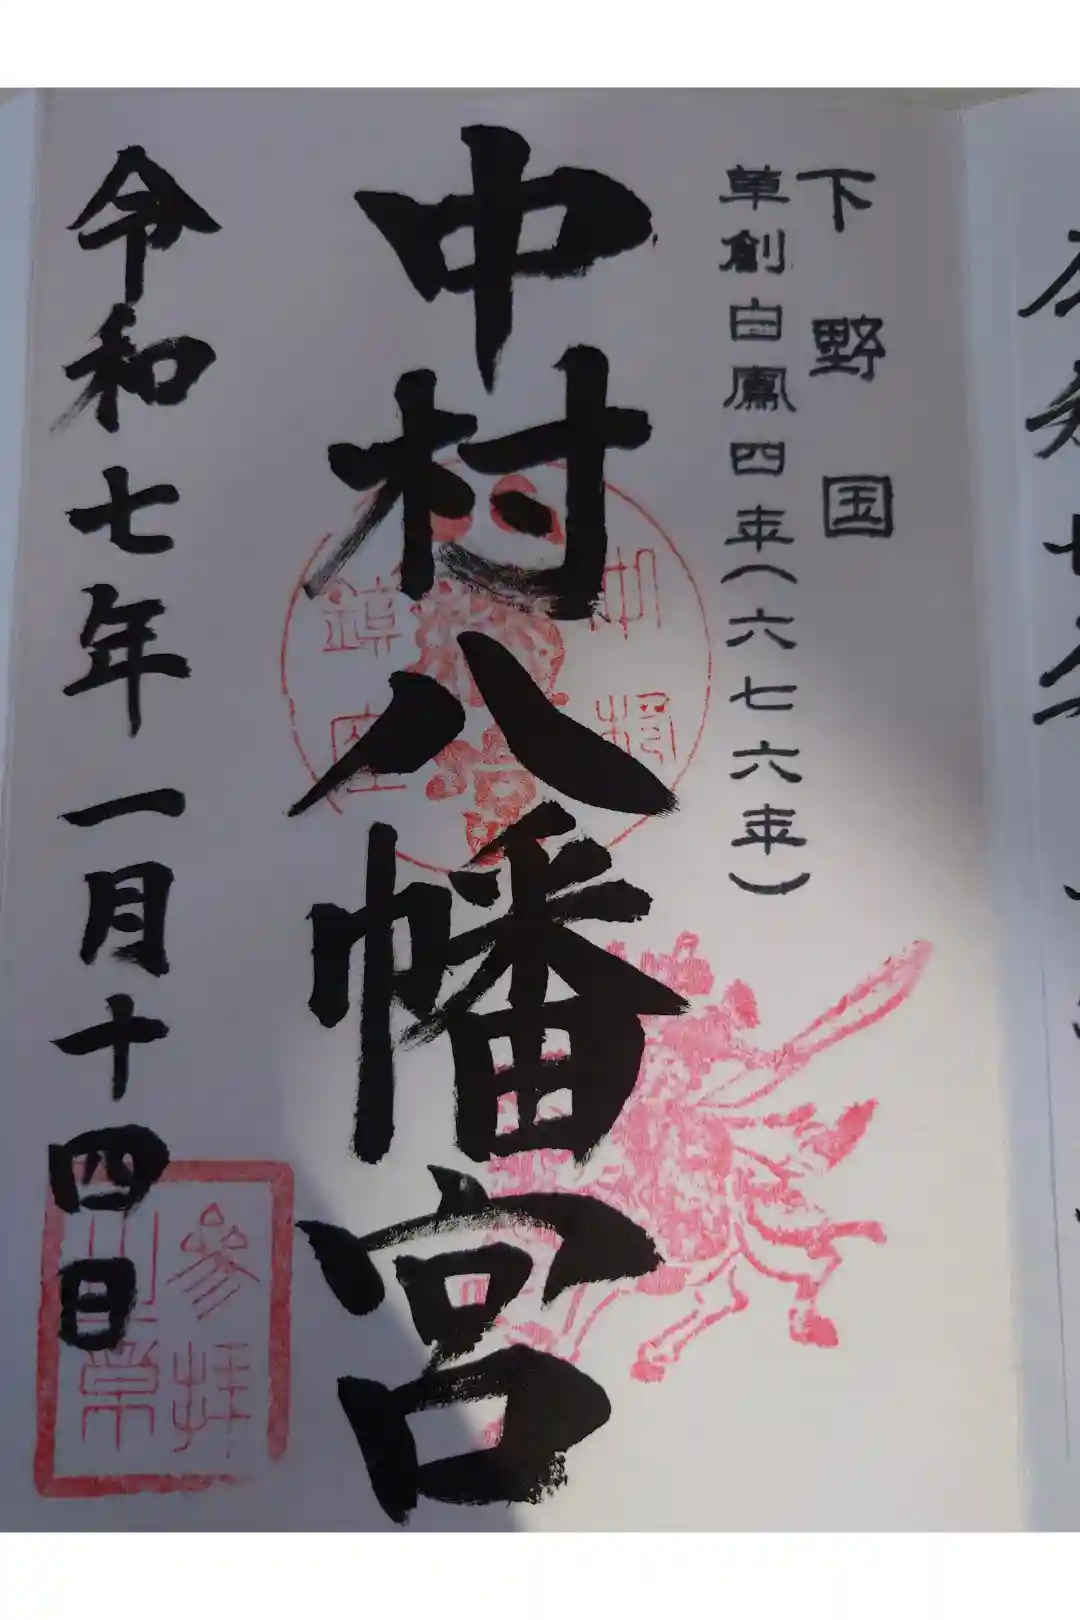 下野国
草創白鳳四年(六七六年)
中村八幡宮
令和七年一月十四日
参拝
鎮座